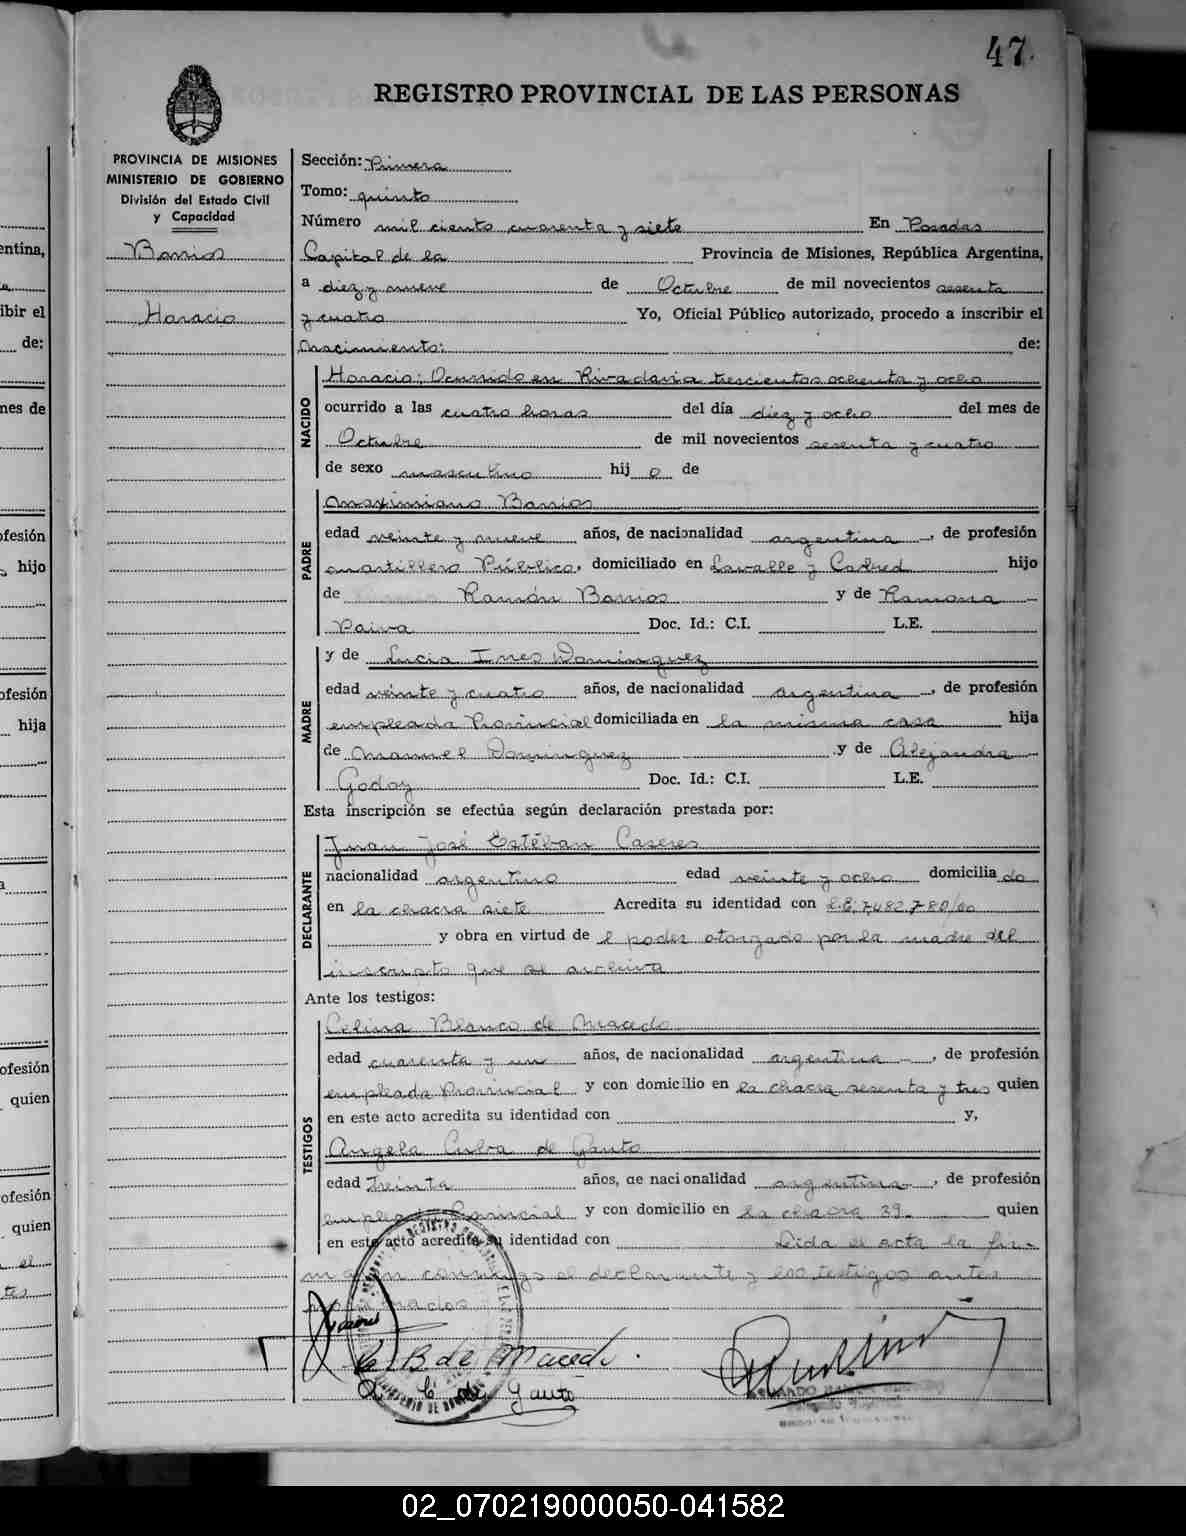 47
REGISTRO PROVINCIAL DE LAS PERSONAS
PROVINCIA DE MISIONES
MINISTERIO DE GOBIERNO
División del Estado Civil
y Capacidad
Barrios
Horacio
Sección: Primera
Tomo: quinto
Número mil ciento cuarenta y siete En Posadas
Capital de la Provincia de Misiones, República Argentina,
a diez y nueve de Octubre de mil novecientos sesenta
y cuatro Yo, Oficial Público autorizado, procedo a inscribir el
nacimiento: de:
NACIDO
Horacio: Ocurrido en Rivadavia trescientos ochenta y ocho
ocurrido a las cuatro horas del día diez y ocho del mes de
Octubre de mil novecientos sesenta y cuatro
de sexo masculino hij o de
PADRE
Maximiano Barrios
edad veinte y nueve años, de nacionalidad argentina, de profesión
martillero Público, domiciliado en Lavalle y Cabred hijo
de Ramón Barrios y de Ramona
Paiva Doc. Id.: C.I. L.E.
MADRE
y de Lucia Ines Dominguez
edad veinte y cuatro años, de nacionalidad argentina, de profesión
empleada Provincial domiciliada en la misma casa hija
de Manuel Dominguez y de Alejandra
Godoy Doc. Id.: C.I. L.E.
Esta inscripción se efectúa según declaración prestada por:
DECLARANTE
Juan José Estéban Caseres
nacionalidad argentino edad veinte y ocho domicilia do
en la chacra siete Acredita su identidad con L.E. 7.482.780/00
y obra en virtud de l poder otorgado por la madre del
inscripto que se archiva
Ante los testigos:
TESTIGOS
Celina Blanco de Macedo
edad cuarenta y un años, de nacionalidad argentina, de profesión
empleada Provincial y con domicilio en la chacra sesenta y tres quien
en este acto acredita su identidad con y,
Angela Cuba de Gauto
edad Treinta años, de nacionalidad argentina, de profesión
empleada Provincial y con domicilio en la chacra 39 quien
en este acto acredita su identidad con Lida el acta la fir-
man conmigo el declarante y los testigos antes
nombrados
C B de Macedo.
A C de Gauto
entina,
ibir el
de:
nes de
ofesión
hijo
ofesión
hija
ofesión
quien
ofesión
quien
02_070219000050-041582